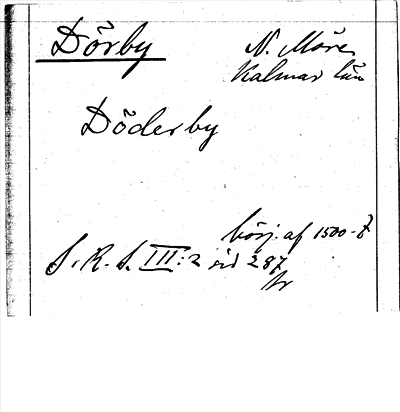 Dörby
N. Möre
Kalmar län
Döderby
börj. af 1500-t
S. R. S. III:2 sid 287